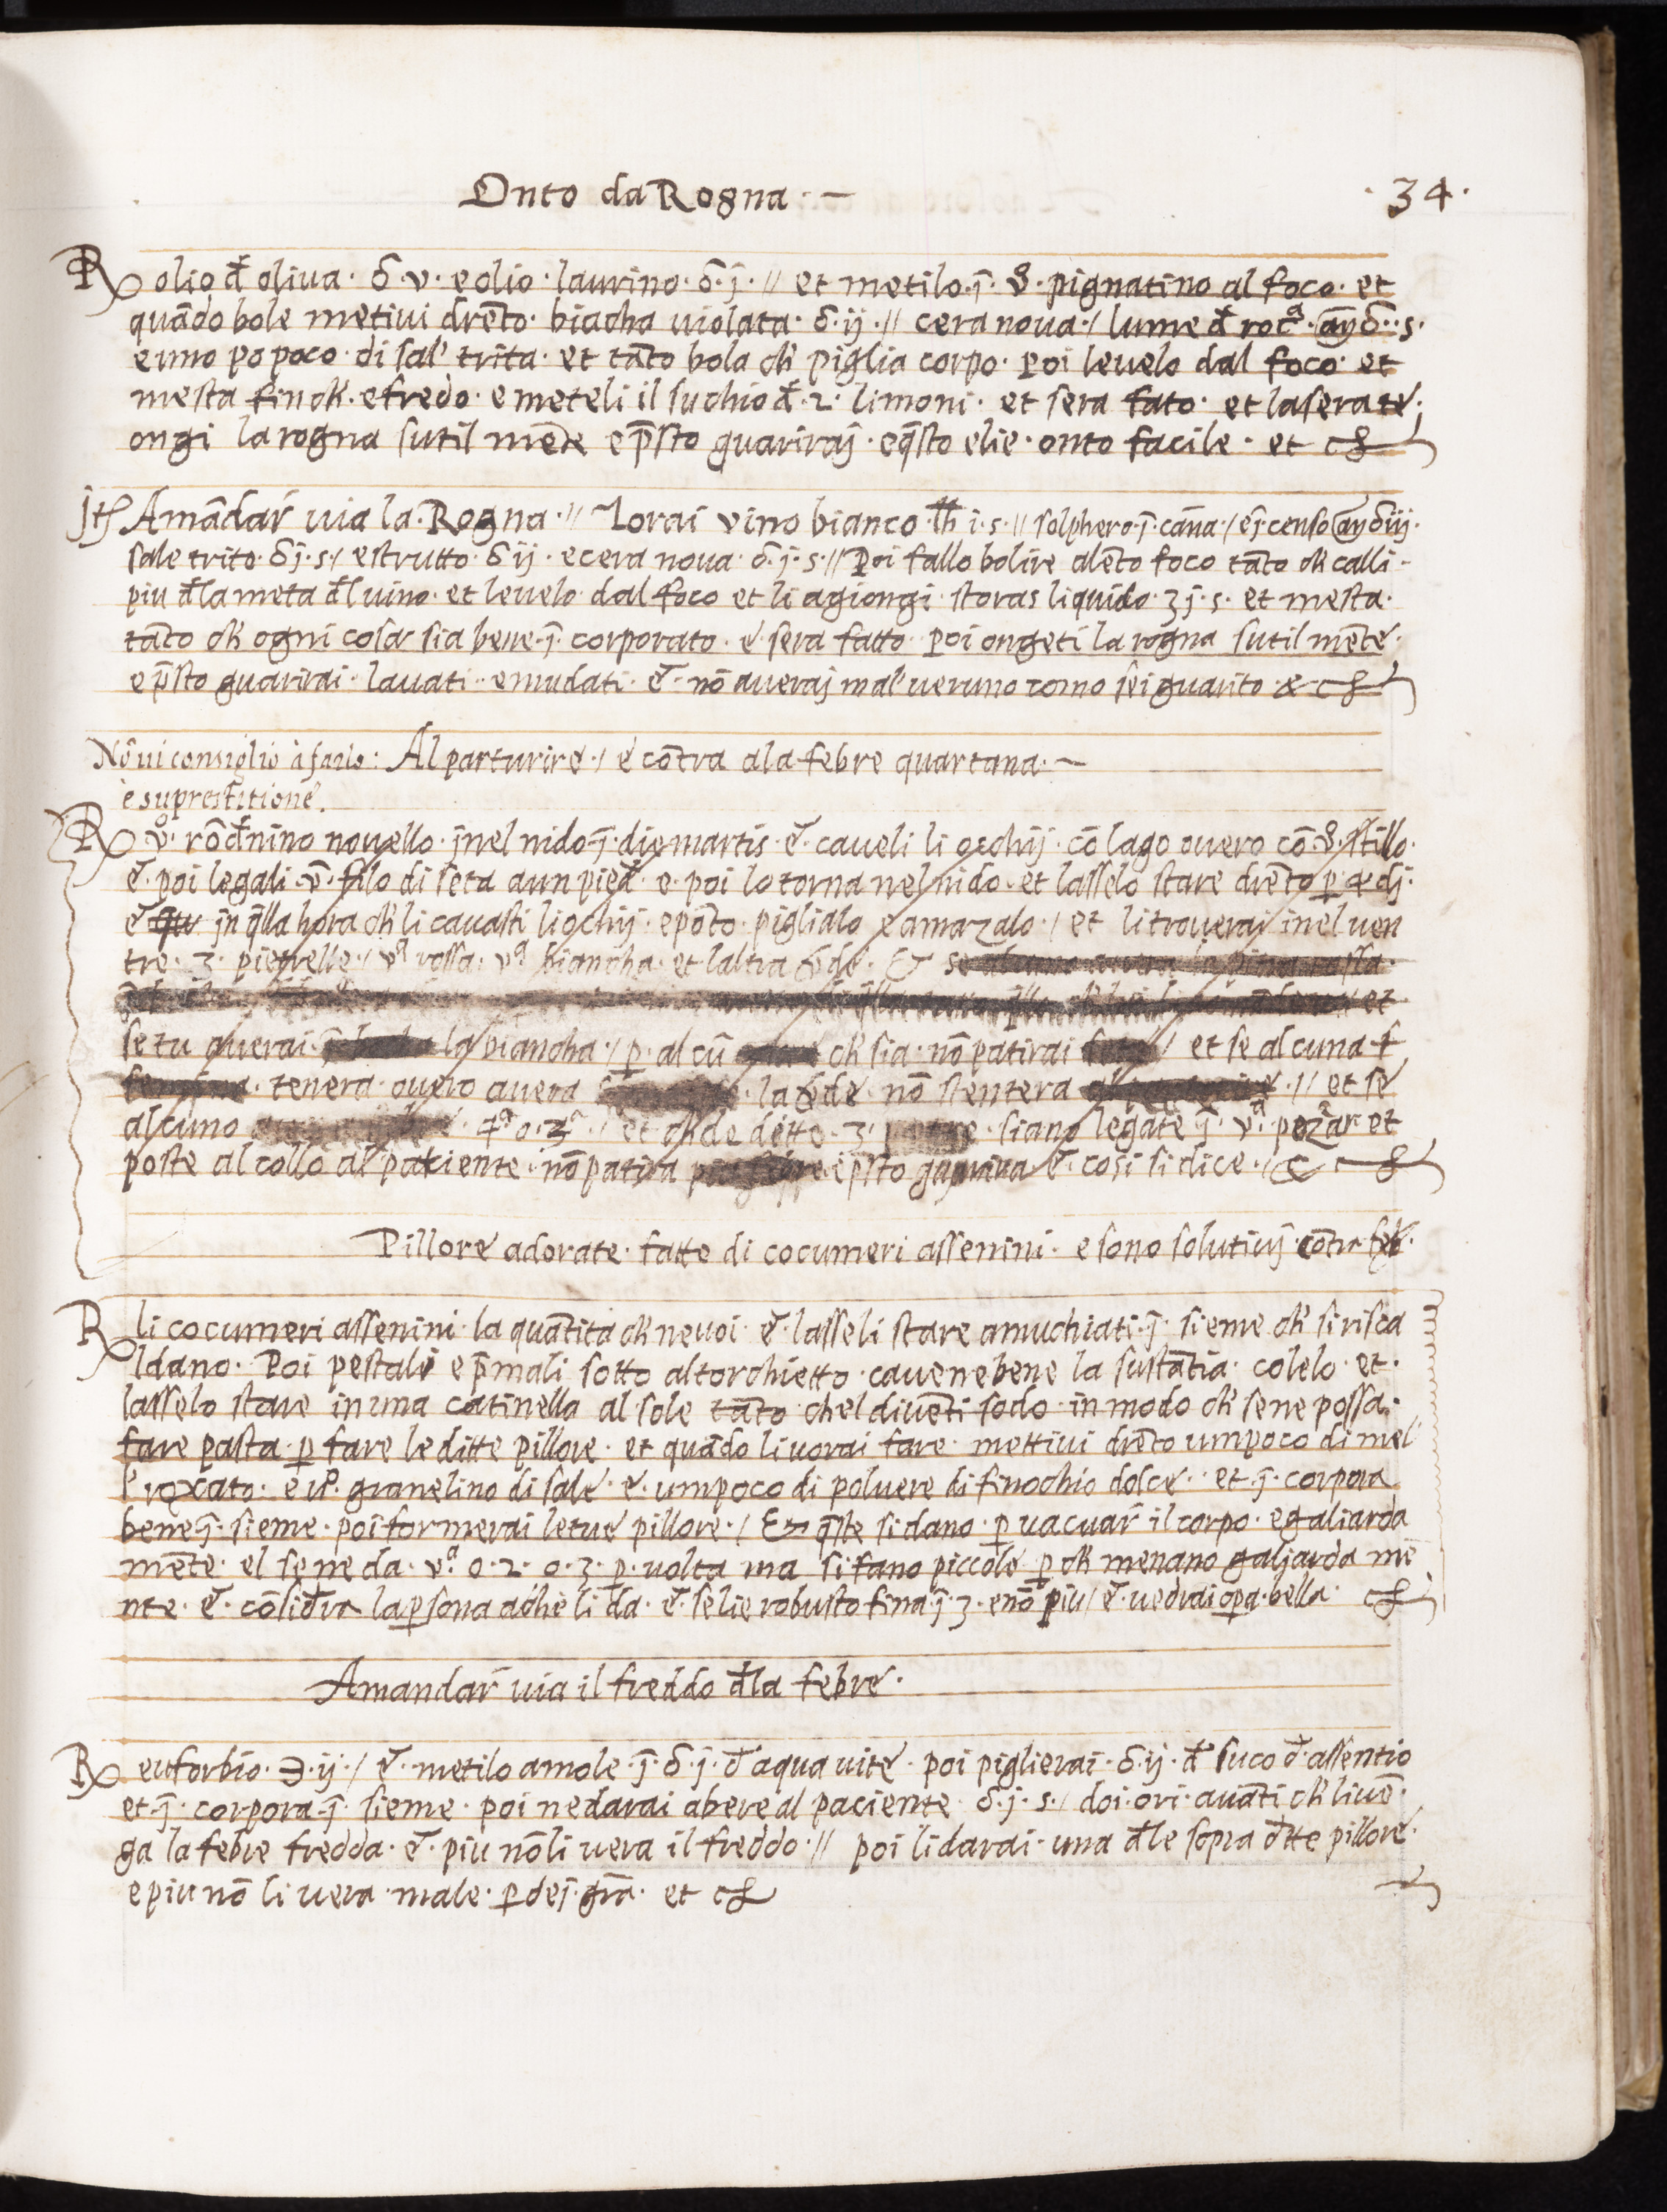 Onto da Rogna · —
· 34 ·
℞ olio đ oliua · δ · v · e olio · laurino · δ · j̄ · // et metilo · j̄ · v̊ · pignatino al foco · et
quādo bole metiui drēto · biacha uiolata · δ · ij · // cera noua · / lume đ rocᵃ · an̄ δ · s ·
e uno po poco · di sal' trita · et tāto bola ch' piglia corpo · poi leuelo dal foco · et
mesta fin ch' · e fredo · e meteli il suchio đ · 2 · limoni · et sera fato · et la sera te
ongi la rogna sutil mēte e p̄sto guariraj · e q̄sto elie · onto facile · et c̃
Jtē A mādar' uia la · Rogna · // Torai vino bianco · ℔ i · s · // solphero · j̄ · cāna · / e j̄censo an̄ δ iij ·
sale trito · δ j · s · / e strutto · δ ij · e cera noua · δ · j · s · // Poi fallo bolire a lēto foco tāto ch' calli ·
piu đla meta đl uino · et leuelo dal foco et li agiongi · storas liquido · ʒ j · s · et mesta ·
tāto ch' ogni cosa sia bene · j̄ · corporato · e · sera fatto · poi ongeti la rogna sutil mēte ·
e p̄sto guarirai · lauati · e mudati · e · nō aueraj mal' ueruno como sei guarito · & c̃
Nō ui consiglio à farlo : Al parturire · / e cōtra a la febre quartana · —
è suprestitione .
℞ v̊ · rōđnino nouello · j̄nel nido · j̄ · die martis · e · caueli li occhij · cō lago ouero cō · v̊ · stillo ·
e · poi legali · v̄ · filo di seta a un pieđ · e · poi lo torna nel nido · et lasselo stare drēto p̱ · 4 · dj ·
e jn q̄lla hora ch' li cauasti li ochij · e pōto · piglialo e amazalo · / et li trouerai inel uen
tre · 3 · pietrelle · / vᵃ rossa · vᵃ biancha · et laltra
se tu auerai · j̄ la biancha · / p̱ · al cū ch' sia · nō patirai / et se alcuna · f
tenera · ouero auera nō stentera · // et se
alcuno · 4ᵃ o · 3ᵃ · / et ditte · 3 · siano legate j̄ · vᵃ · et
poste al collo al paciente · nō patira e p̄sto guarira e · cosi si dice · / & c̃
Pillore adorate · fatte di cocumeri assenini · e sono solutiuj · cōtra feb̄ ·
℞ li cocumeri assenini · la quātita ch' ne uoi · e · lasseli stare amuchiati · j̄ · sieme ch' si risca
ldano · Poi pestali e p̄mali sotto al torchietto · cauene bene la sustātia · colelo · et ·
lasselo stare in una catinella al sole tāto · chel diuēti sodo · in modo ch' se ne possa ·
fare pasta · p̱ fare le ditte pillore · et quādo li uorai fare · mettiui drēto um poco di mel
l' roxato · e v̊ · granelino di sale · e · um poco di poluere di finochio dolce · et · j̄ · corpora
bene j̄ · sieme · poi formerai le tue pillore · / Et q̄ste si dano · p̱ uacuar' il corpo · e galiarda
mēte · el se ne da · vᵃ · o · 2 · o · 3 · p̱ · uolta ma si fano piccole p̱ ch' menano galjarda mē
nte · e · cōsiđra la p̱sona a chè li da · e · se lie robusto fina · j̄ · 3 · e nō piu / e · uedrai op̱a · bella · c̃
A mandar' uia il freddo đla febre ·
℞ euforbio · ℈ · ij · / e · metilo a mole · j̄ · δ · j · đ aqua uite · poi piglierai · δ · ij · đ suco đ assentio
et · j̄ · corpora · j̄ · sieme · poi ne darai a bere al paciente · δ · j · s · / doi · ori · auāti ch' li uē
ga la febre fredda · e · piu nō li uera il freddo · // poi li darai · una đle sopra đtte pillore ·
e piu nō li uera · male · p̱ dej · gr̄a · et c̃